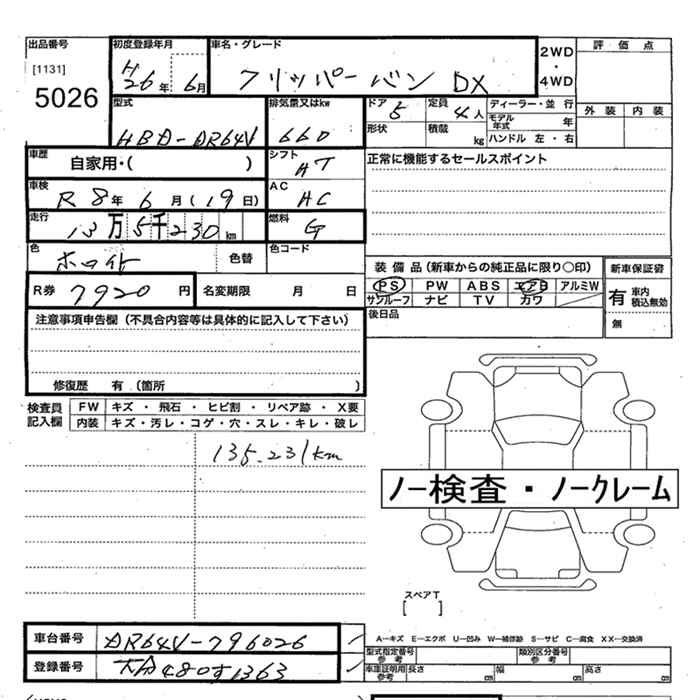 出品番号 初度登録年月 車名・グレード 2WD・4WD 評価点
[1131] H26年6月 クリッパーバン DX
5026
型式 排気量又はkw ドア 5 定員 4人 ディーラー・並行 外装 内装
HBD-DR64V 660 形状 積載 kg モデル年式 年
ハンドル 左・右
車歴 自家用・( ) シフト AT 正常に機能するセールスポイント
車検 R8年6月(19日) AC AC
走行 13万5千230km 燃料 G
色 ホワイト 色替 色コード 装備品(新車からの純正品に限り○印) 新車保証書
R券 7920円 名変期限 月 日 PS PW ABS エアB アルミW 有 車内 積込無効
サンルーフ ナビ TV カワ
注意事項申告欄(不具合内容等は具体的に記入して下さい) 後日品 無
修復歴 有(箇所 )
検査員記入欄 FW キズ・飛石・ヒビ割・リペア跡・X要
内装 キズ・汚レ・コゲ・穴・スレ・キレ・破レ
135.231km
ノー検査・ノークレーム
スペアT
[ ]
車台番号 DR64V-796026 A―キズ E―エクボ U―凹み W―補修跡 S―サビ C―腐食 XX―交換済
型式指定番号 参考 類別区分番号 参考
登録番号 大分480す1363 車庫証明用 参考 長さ cm 幅 cm 高さ cm